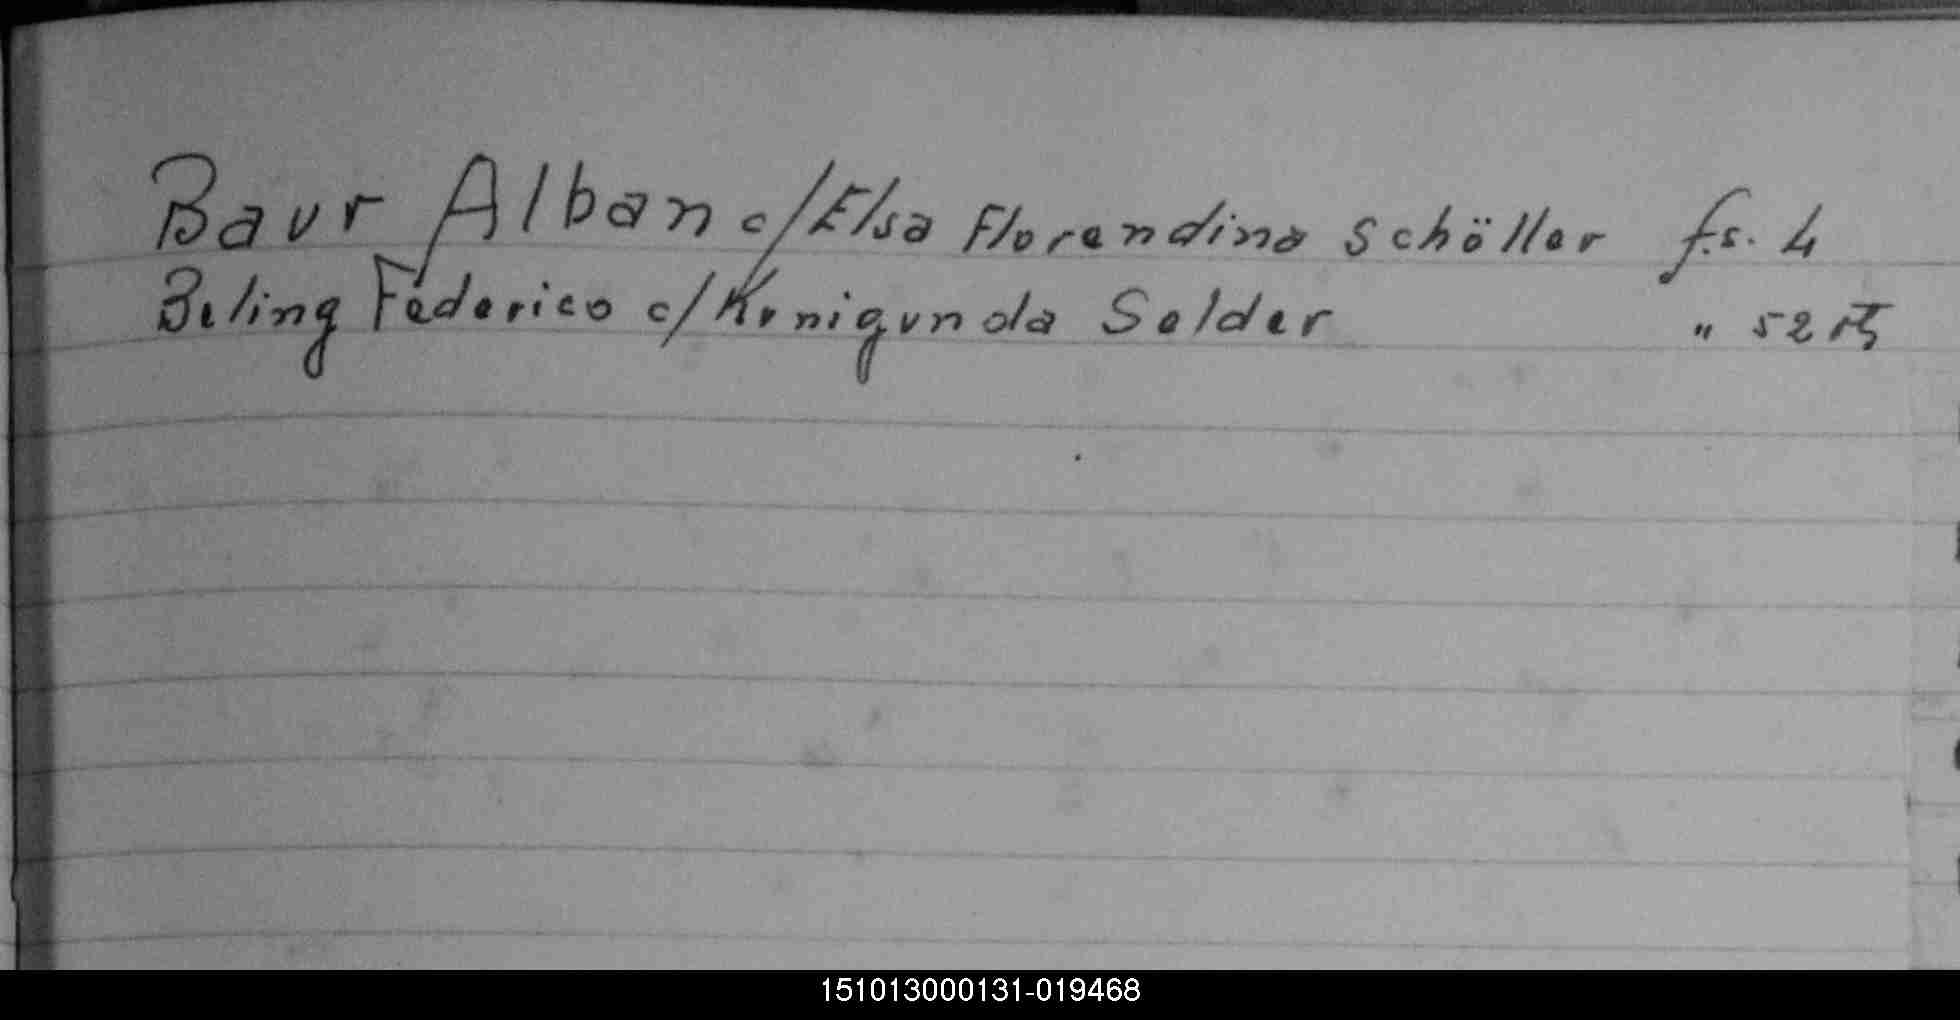 Baur Alban c/Elsa Florendina Schöller f.s. 4
Beling Federico c/Kunigunda Selder " 52
151013000131-019468